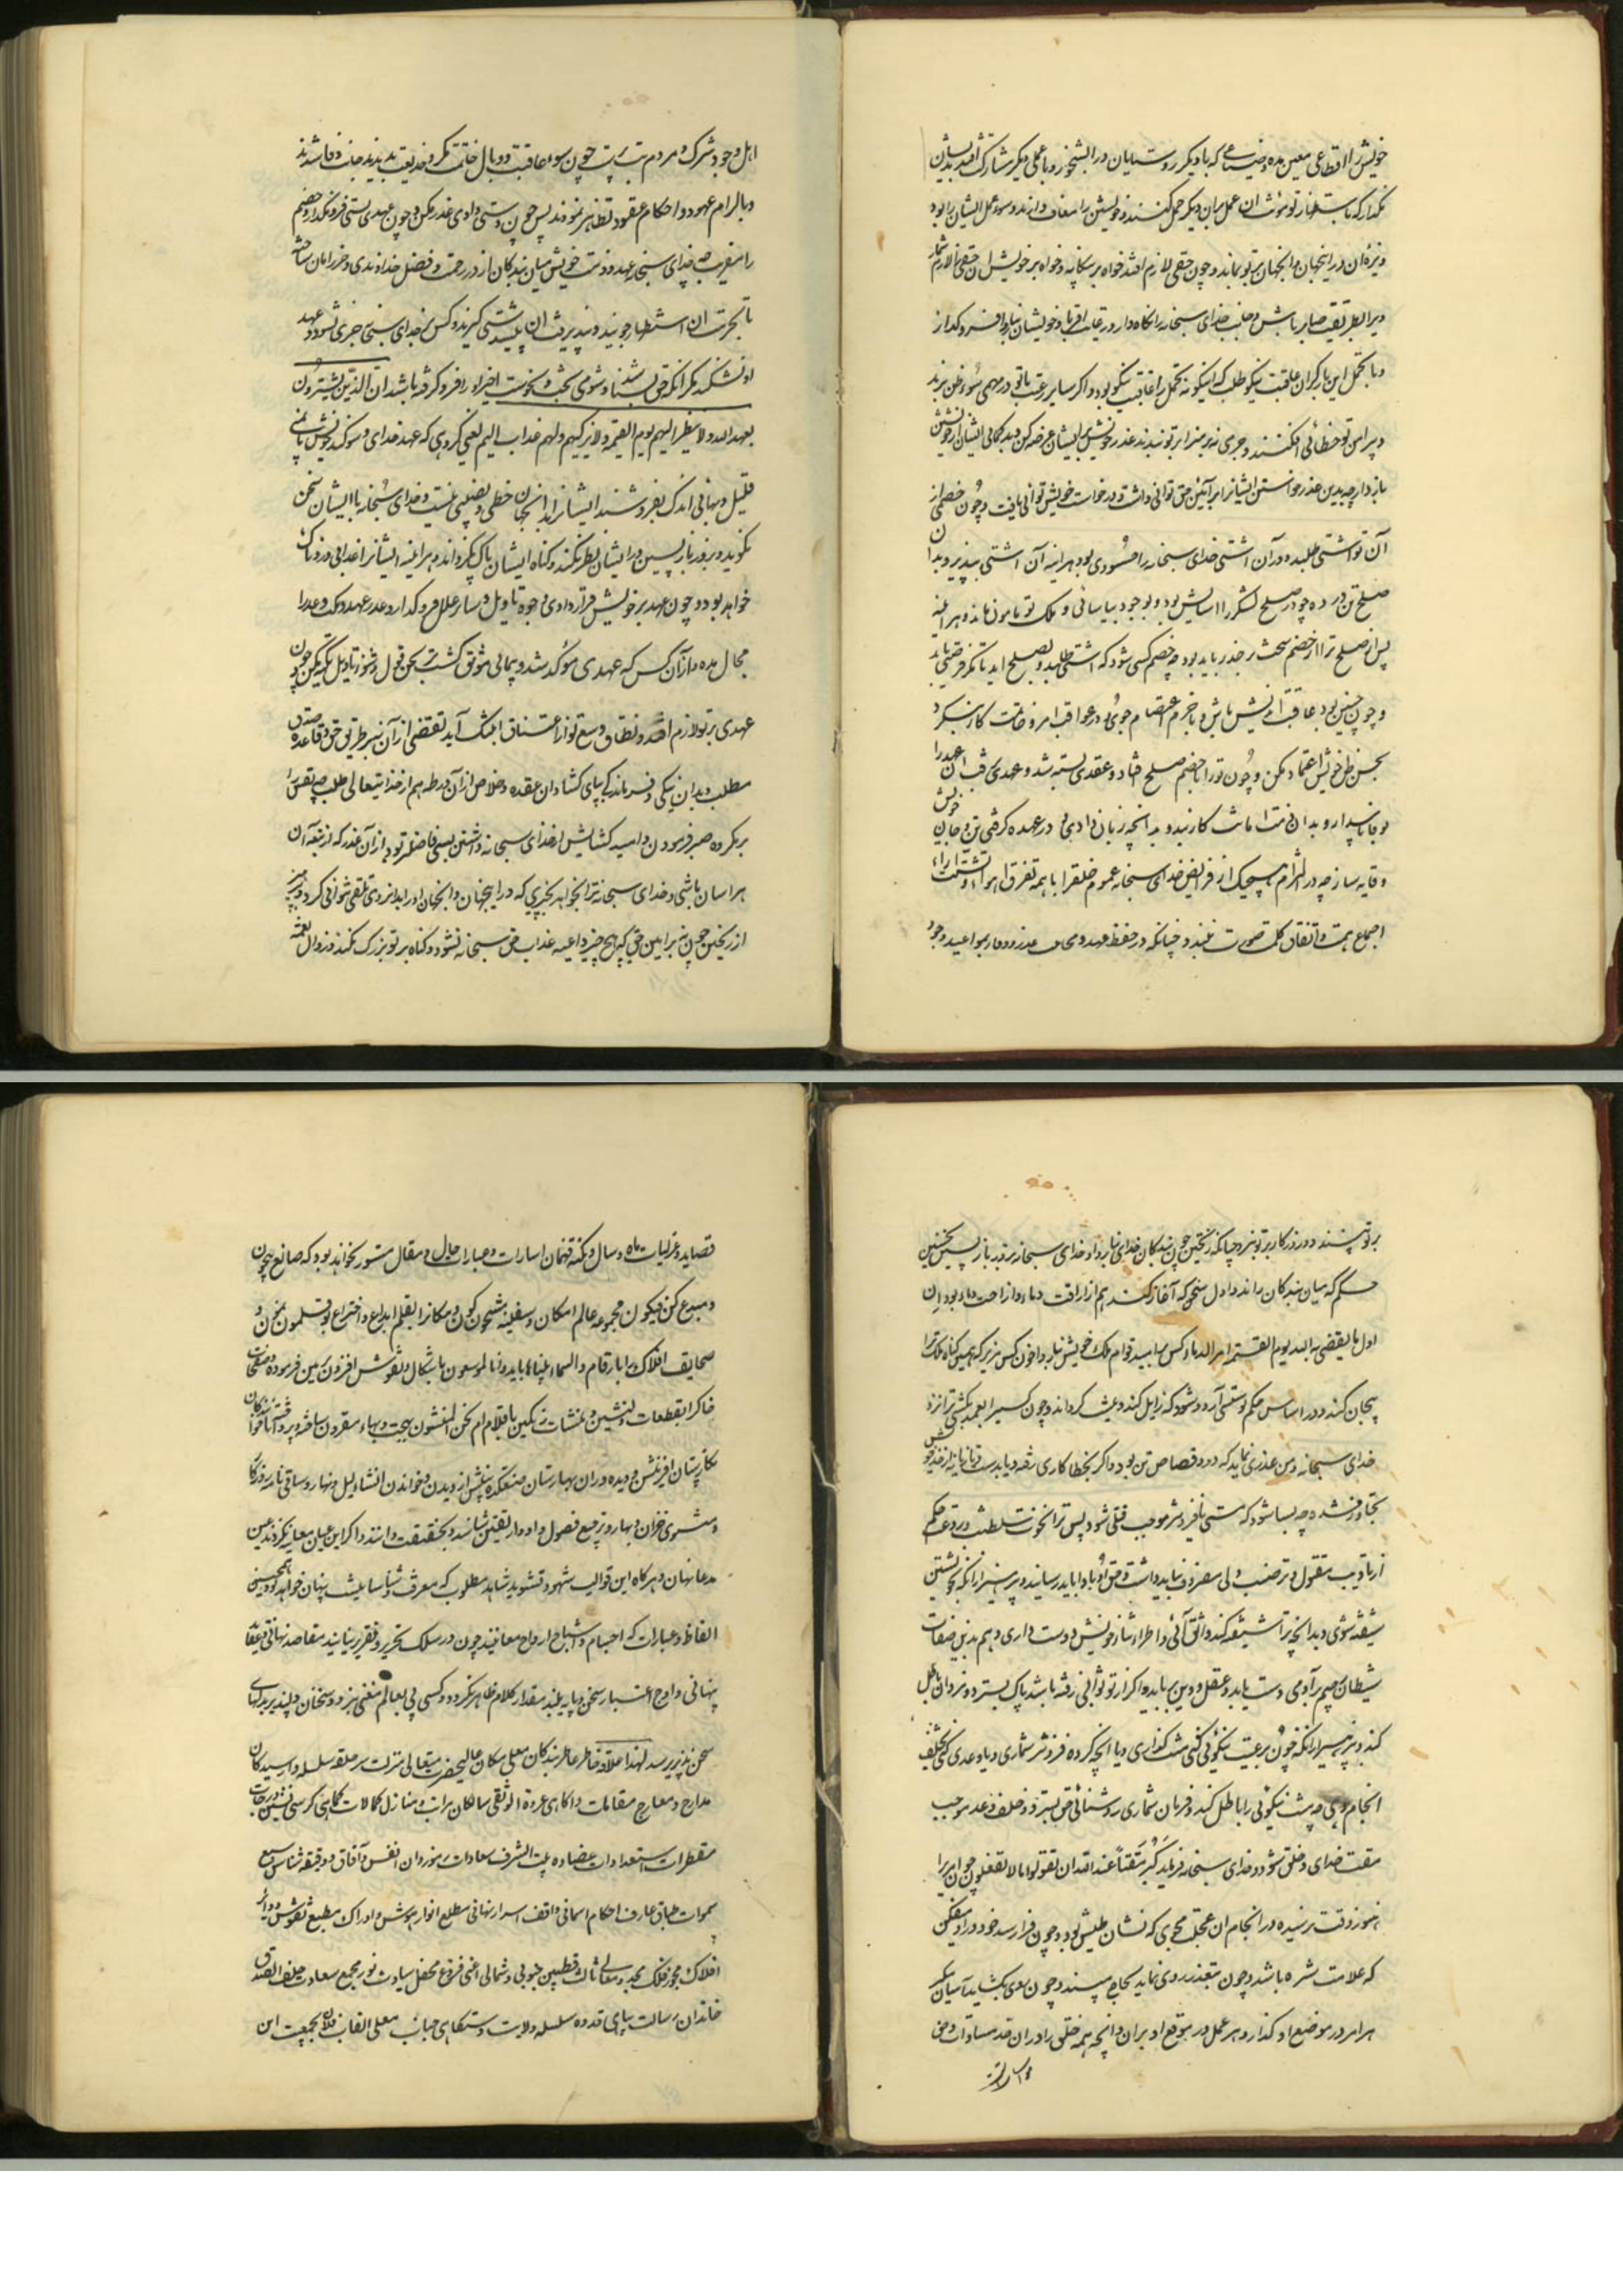 خویش را اقطاعی معین مده و ضیاعی که با دیگر روستایان در آبشخور و یا عملی دیگر مشارک افتد بدیشان
مگذار که باستظهار تو مؤنت آن عمل بر آن دیگر حمل کنند و خویشتن را معاف دارند و سود عمل ایشان را بود
و بزه آن در اینجهان و آنجهان بر تو بماند و چون حقی لازم افتد خواه بر بیگانه و خواه بر خویش آن حق را لازم شمار
و بر این طریقت صابر باش و جانب خدای سبحانه را نگاه دار و رعایت اقربا و خویشان نیارد فرو گذار
و با تحمل این بار گران عاقبت نیکو طلب که اینگونه تحمل را عاقبت نیکو بود و اگر سایر رعیت با تو در مهمی سوء ظن برند
و پیرامن تو خطائی افکنند و جرمی نه بر سزا بر تو بندند عذر خویش بر ایشان عرضه کن و بدگمانی ایشان از خویشتن
باز دار چه بدین عذر خواستن ایشان را بر آئین حق توانی داشت و درخواست خویش توانی یافت و چون خصمی از
آن تو آشتی طلبد و در آن آشتی خدای سبحانه را خشنودی بود هر آینه آن آشتی بپذیر و بدان
صلح تن در ده چو در صلح لشکر را آسایش بود و بوجود بیاسائی و ملک تو مامون ماند و هر آینه
پس از صلح ترا از خصم سخت بر حذر باید بود چه خصم کسی شود که آشتی طلبد و بصلح آید تا مگر فرصتی یابد
و چون چنین بود عاقبت اندیش باش و با حزم اعتصام جوی و در عواقب امر و خاتمت کار بنگر و
بحسن ظن خویش اعتماد مکن و چون تو را با خصم صلح افتاد و عقدی بسته شد و عهدی رفت آن عهد را
بوفا پاس دار و بدان ذمت امانت کار بند و بدانچه زبان دادی و در عهده گرفتی تن و جان خویش
وقایه ساز چه در التزام هیچیک از فرایض خدای سبحانه عموم خلق را با همه تفرق اهوا و تشتت آراء
اجماع همت و اتفاق کلمه صورت نبندد چنانکه در حفظ عهد و وفا بمواعید وجود
اهل وجود شرک و مردم بت پرست چون سوء عاقبت و وبال خاتمت مکر و خدیعت بدیدند بجانب وفا شدند
و بالزام عهود و احکام عقود تظاهر نمودند پس چون دستی دادی غدر مکن و چون عهدی بستی فرو مگذار و خصم
را مفریب چه خدای سبحانه عهد و ذمت خویش میان بندگان از در رحمت و فضل خداوندی و حرز امان ساخته
تا بحرمت آن استظهار جویند و بپذیرفت آن پشتی گیرند و کس بر خدای سبحانه جری نشود و عهد
او نشکند مگر آنکه حق نشناسد و شومی بخت و نحوست اختر او را فرو گرفته باشد ان الذین یشترون
بعهد الله ولا ینظر الیهم یوم القیمه ولا یزکیهم ولهم عذاب الیم یعنی گروهی که عهد خدای و سوگند خویش بثمنی
قلیل و بهائی اندک بفروشند ایشان را در آنجهان حظی و نصیبی نیست و خدای سبحانه با ایشان سخن
نگوید و بروز باز پسین در ایشان نظر نکند و گناه ایشان پاک نگرداند و هر آینه ایشان را عذابی دردناک
خواهد بود و چون عهد بر خویش قرار دادی وجوه تاویل و سایر علل فرو گذار و غدر عهد و مکث وعد را
مجال مده و از آن پس که عهدی موکد شد و پیمانی موثق گشت بر لحن قول و رموز تاویل تکیه مکن و چون
عهدی بر تو لازم افتد و نطاق وسع تو از اعتناق آن تنگ آید تفصی از آن بغیر طریق حق و قاعده صدق
مطلب و بدان تنگی و فرو ماندگی بپای و گشاد آن عقده و خلاص از آن ورطه هم از خدایتعالی طلب چه نفس را
بر مکروه صبر فرمودن و امید گشایش از خدای سبحانه داشتن بسی فاضلتر بود از آن غدر که از تبعه آن
هراسان باشی و خدای سبحانه ترا نخواهد بخیری که در اینجهان و آنجهان او را بدانروی تلقی توانی کرد و پرهیز
از ریختن خون بر این حق که هیچ چیز داعیه عذاب حق سبحانه نشود و گناه بر تو بزرگ نکند و زوال نعمة
بر تو پسندد و روزگار بر تو نبرد چنانکه ریختن خون بندگان خدای بنا روا و خدای سبحانه بروز باز پسین نخستین
حکم که میان بندگان راند و اول سخن که آغاز کند هم از اراقت دماء و ازاحت دماء بود ان
اول ما یقضی به الله یوم القیمة امر الدماء و کس را مباد قوام ملک خویش بنا روا خون کس مریز که همین گناه ملک ترا
بیجان کند و در اساس حکم تو سستی آرد و شود که زایل کند و بگرداند و چون کسی را بعمد بکشتی ترا نزد
خدای سبحانه و من عذری نماند که در او قصاص تن بود و اگر بخطا کاری رفته و یا بدست و تازیانه از حد خویش
تجاوز شده چه بسا شود که مشتی یا فروتر موجب قتلی شود پس ترا نخوت سلطنت و رفعت حکم
از تادیب مقتول و ترضیت ولی مصروف نباید داشت و حق او باولیا باید رسانید و بپرهیز از آنکه بخویشتن
شیفته شوی و بدانچه ترا شیفته کند واثق آئی و اطراء و ثناء خویش دوست داری و هم بدین صفات
شیطان رجیم بر آدمی دست یابد و عقل و دین برباید و اگر از تو ثوابی رفته باشد پاک بسترد و نردان باطل
کند و بپرهیز از آنکه چون بر رعیت نیکوئی کنی منت گذاری و یا آنچه کرده فزونتر شماری و یا وعدی کنی بتخلف
انجام دهی چه منت نیکوئی را باطل کند و فزون شماری روشنائی حق بسترد و خلف وعد موجب
مقت خدای و خلق شود و خدای سبحانه فرماید کبر مقتا عند الله ان تقولوا مالا تفعلون چون امری را
هنوز وقت نرسیده در انجام آن عجلت مجوی که نشان طیش بود و چون فرا رسد خود در او میفکن
که علامت شره باشد و چون متعذر روی نماید لجاج مپسند و چون روی بگشاید آسان مگیر
هر امر در موضع او گذار و هر عمل در موقع او بران و آنچه همه خلق را در آن قدم مساوات و حق
قصاید و غزلیات ماه و سال و نکته فهمان اشارات و عبارات حال و مقال مستور نخواهد بود که صانع بیچون
و مبدع کن فیکون مجموعه عالم امکان و سفینه مشحون کون و مکان را بقلم ابداع و اختراع بوقلمون بی چون و
صحایف افلاک را بارقام والسماء بنیناها باید وانا لموسعون باشکال و نقوش افزون مزین فرموده و صفحات
خاک را بقطعات دلنشین و منشآت رنگین باقلام ام نحن المنشئون ببهجت و بهاء مقرون ساخته و پرداخته تا خوانندگان
نگارستان آفرینش و دیده وران بهارستان صنعتکده بینش از دیدن و خواندن انشاء لیل و نهار و ساقی نامه روزگار
و مثنوی خزان و بهار و ترجیع فصول و ادوار بیقین شناسند و بحقیقت دانند و اگر این عیان معاینه نگردد عین
مدعا نهان و هر گاه این قوالب شهود نشوند شاهد مطلوب که معرفت و شناسائیست پنهان خواهد بود همچنین
الفاظ و عبارات که اجسام و اشباح ارواح معانیند چون در سلک تحریر و تقریر نیایند مقاصد نهانی و عقاید
پنهانی و اوج اعتبار سخن و پایه بلند مقدار کلام ظاهر نگردد و کسی پی بعالم معنی نبرد و سخنان دلپذیر بدلهای
سخن پذیر نرسد لهذا علاوه خاطر عاطر بندگان معلی مکان عالیحضرت متعالی منزلت سر حلقه سلسله وارسیدگان
مدارج و معارج مقامات و آگاهی عروة الوثقی سالکان مراتب و منازل کمالات کماهی کرسی نشین درجات
مقنطرات استعدادات عضاده بیت الشرف سعادات رموزدان انفس و آفاق و دقیقه شناس سبع
سموات طباق عارف احکام آسمانی واقف اسرار نهانی مطلع انوار هوش و ادراک منطبع نقوش دوایر
افلاک محور فلک مجد و معالی ثالث قطبین جنوبی و شمالی اعنی فروغ محفل سیادت نور مجمع سعادت خلف الصدق
خاندان رسالت پناهی قدوه سلسله ولایت دستگاهی جناب معلی القاب فلان بجمعیت این